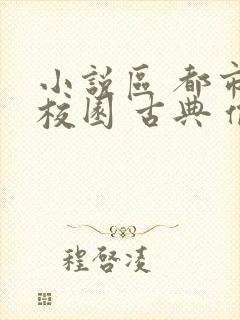 小說區 都市
校園 古典
程啓凌